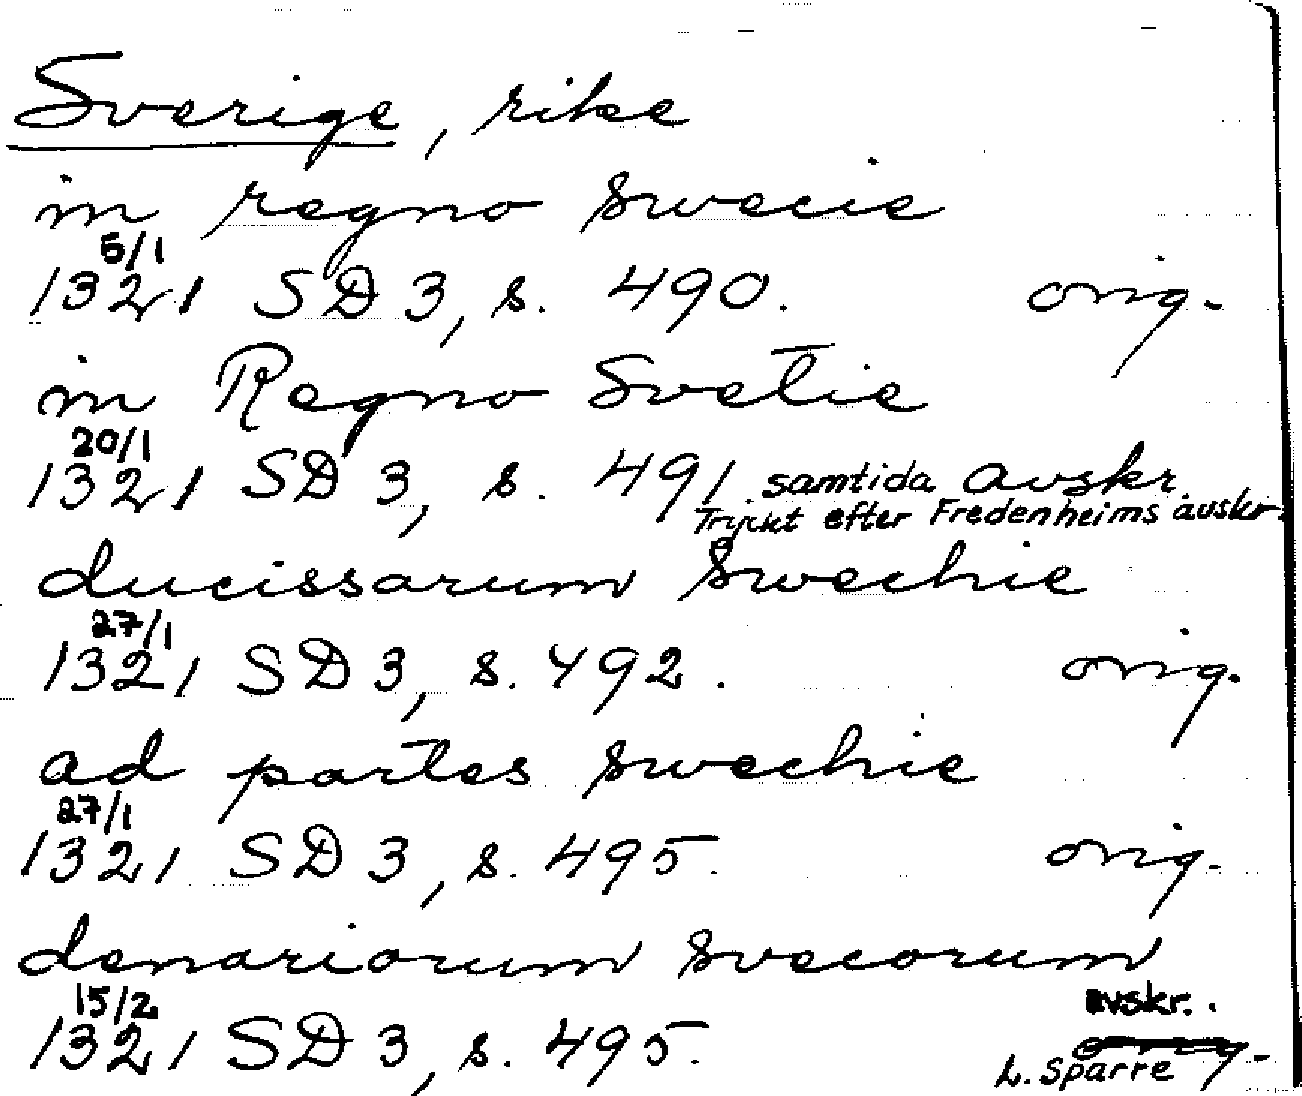 Sverige, rike
in regno swecie
5/1
1321 SD 3, s. 490. orig.
in Regno Svetie
20/1
1321 SD 3, s. 491. samtida avskr.
Tryckt efter Fredenheims avskr.
ducissarum swechie
27/1
1321 SD 3, s. 492. orig.
ad partes swechie
27/1
1321 SD 3, s. 495. orig.
denariorum svecorum
15/2 avskr.
1321 SD 3, s. 495. orig.
L. Sparre